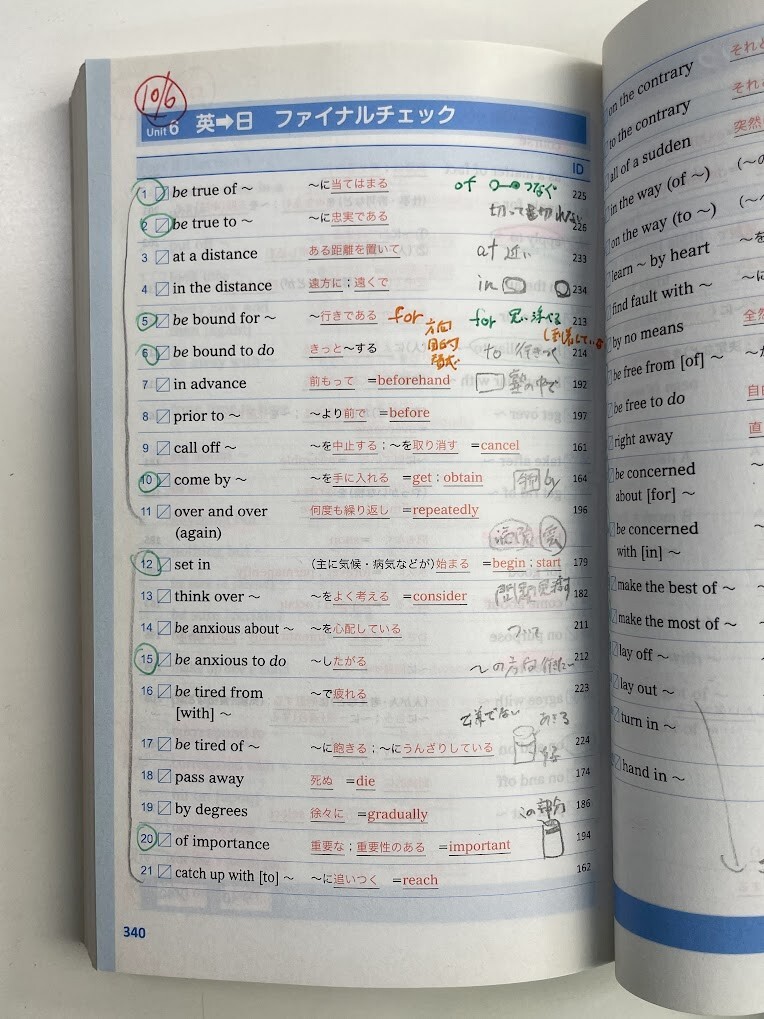 10/6
Unit 6 英➡日 ファイナルチェック
ID
1 be true of ~ ~に当てはまる of つなぐ 225
2 be true to ~ ~に忠実である 切っても切れない 226
3 at a distance ある距離を置いて at 近い 233
4 in the distance 遠方に；遠くで in 234
5 be bound for ~ ~行きである for for 思い浮べる 213
方向
目的
6 be bound to do きっと~する to 行きつく 214
7 in advance 前もって =beforehand 192
8 prior to ~ ~より前で =before 197
9 call off ~ ~を中止する；~を取り消す =cancel 161
10 come by ~ ~を手に入れる =get；obtain by 164
11 over and over (again) 何度も繰り返し =repeatedly 196
12 set in （主に気候・病気などが）始まる =begin；start 179
13 think over ~ ~をよく考える =consider 182
14 be anxious about ~ ~を心配している ついて 211
15 be anxious to do ~したがる ~の方向 212
16 be tired from [with] ~ ~で疲れる 223
17 be tired of ~ ~に飽きる；~にうんざりしている あきる 224
18 pass away 死ぬ =die 174
19 by degrees 徐々に =gradually この部分 186
20 of importance 重要な；重要性のある =important 194
21 catch up with [to] ~ ~に追いつく =reach 162
340
on the contrary それと
to the contrary それと
all of a sudden 突然
in the way (of ~) (~の
on the way (to ~) (~へ
learn ~ by heart ~を
find fault with ~ ~に
by no means 全然
be free from [of] ~ ~か
be free to do 自由
right away 直
be concerned about [for] ~ ~
be concerned with [in] ~ ~
make the best of ~ ~
make the most of ~ ~
lay off ~
lay out ~
turn in ~
hand in ~